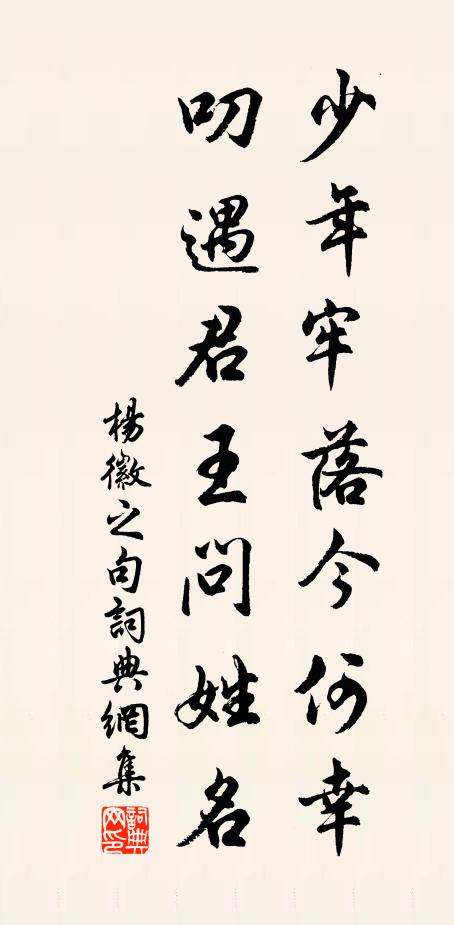 少年牢落今何幸
叨遇君王問姓名
楊徽之句詞典網集
詞典網印